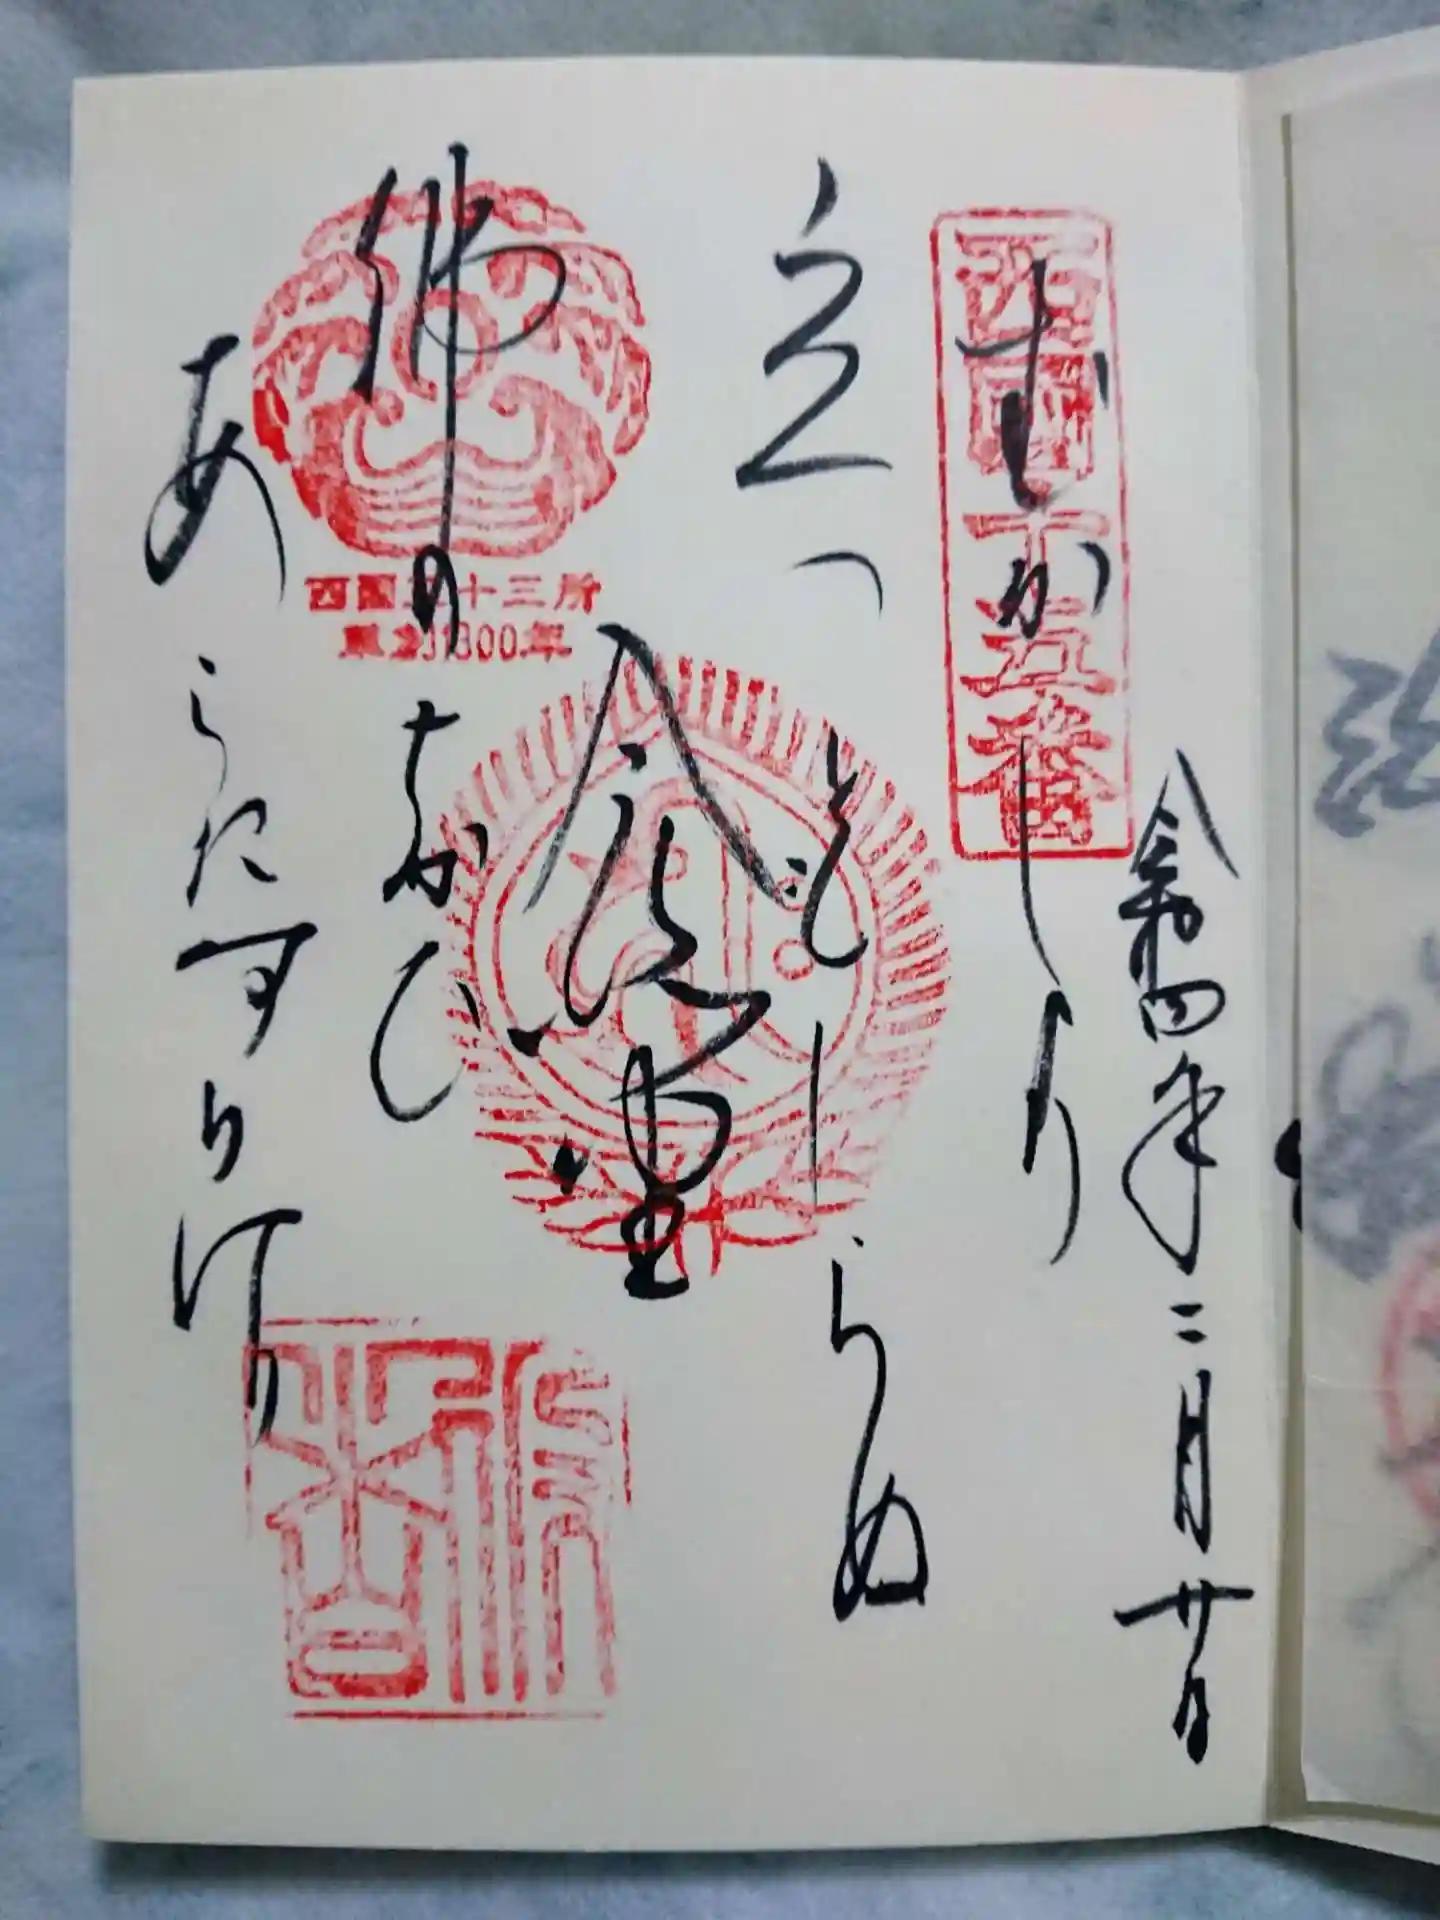 西國十五番
令和四年二月廿日
むかしより
立つともしらぬ
今熊野
佛のちかひ
あらたなりけり
西国三十三所
草創1300年